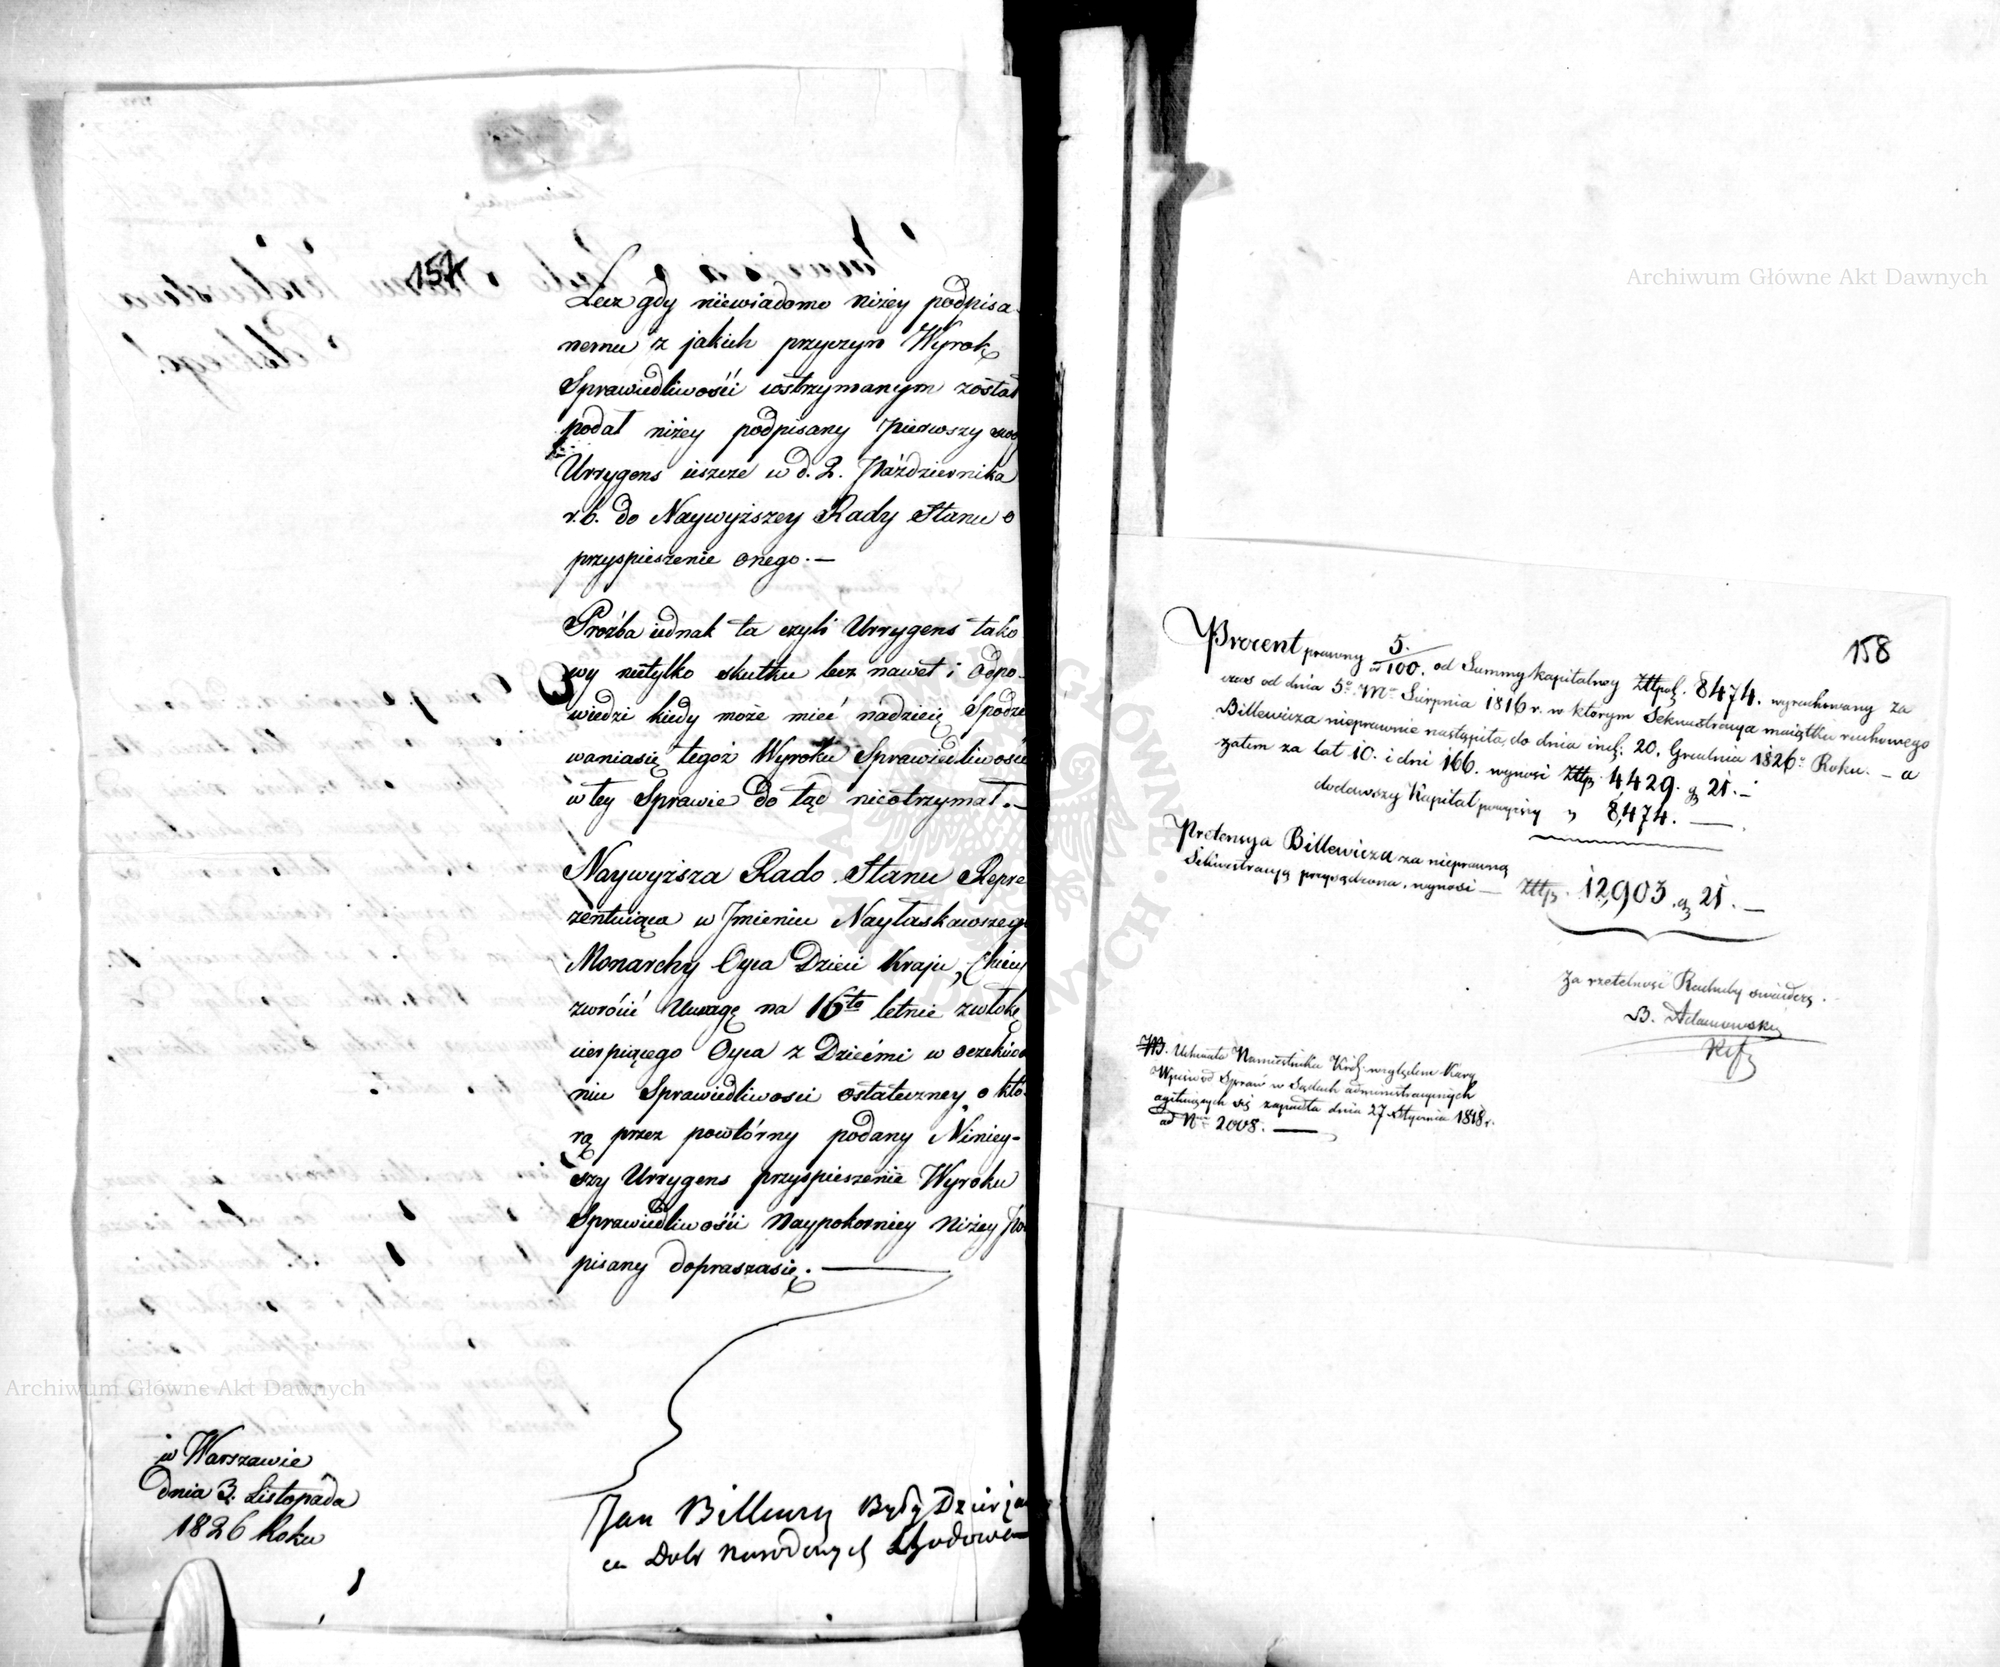 157
Lecz gdy niewiadomo niżey podpisa-
nemu z jakich przyczyn Wyrok
Sprawiedliwości wstrzymanym został
podał niżey podpisany pierwszy
Urrygens ieszcze w d. 2. Października
r. b. do Naywyższey Rady Stanu o
przyspieszenie onego. —
Proźba iednak ta czyli Urrygens tako
wy nietylko skutku lecz nawet i Odpo-
wiedzi kiedy może mieć nadzieię Spodze
waniasię tegoż Wyroku Sprawiedliwości
w tey Sprawie do tąd nieotrzymał. —
Naywyższa Rado Stanu Repre
zentuiąca w Jmieniu Nayłaskawszego
Monarchy Oyca Dzieci Kraju, Chciey
zwrócić Uwagę na 16to letnie zwłokę
cierpiącego Oyca z Dziećmi w oczekiwa
niu Sprawiedliwosci ostateczney o któ-
rą przez powtórny podany Niniey-
szy Urrygens przyspieszenie Wyroku
Sprawiedliwości Naypokorniey Niżey Po
pisany dopraszasię. —
w Warszawie
dnia 3. Listopada
1826 Roku
Jan Billewicz Były Dzierża
ca Dobr Narodowych
158
Procent prawny 5/100. od Summy kapitalney Złtpol. 8474. wyrachowany za
czas od dnia 5o Mca Sierpnia 1816 r. w ktorym Sekwestracya maiątku ruchomego
Billewicza nieprawnie nastąpiła, do dnia incl: 20. Grudnia 1826o Roku. — a
zatem za lat 10. i dni 166. wynosi Złtp. 4429. g 21. —
dodawszy Kapitał powyższy „ 8,474. —
Pretensya Billewicza za nieprawną
Sekwestracyą przysądzona, wynosi — Złtp. 12,903. g 21. —
Za rzetelność Rachuby świadczę.
B. Adamowski
Ref
NB. Uchwała Namiestnika Król: względem Kary
Wpisów od Spraw w Sądach administracyinych
agituiących się zapadła dnia 27 Stycznia 1818 r.
ad Nrum 2008. —
Archiwum Główne Akt Dawnych
Archiwum Główne Akt Dawnych